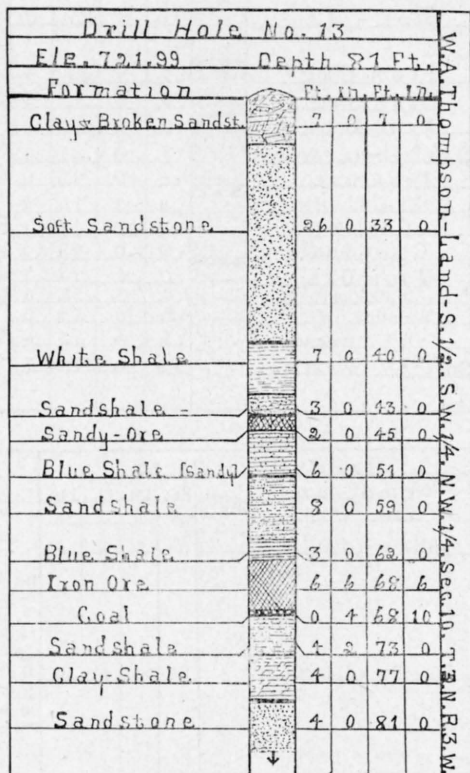 Drill Hole No. 13
Ele. 721.99 Depth 81 Ft.
Formation Ft. In. Ft. In.
Clay & Broken Sandst. 7 0 7 0
Soft Sandstone 26 0 33 0
White Shale 7 0 40 0
Sandshale 3 0 43 0
Sandy-Ore 2 0 45 0
Blue Shale (Sandy) 6 0 51 0
Sandshale 8 0 59 0
Blue Shale 3 0 62 0
Iron Ore 6 6 68 6
Coal 0 4 68 10
Sandshale 4 2 73 0
Clay-Shale 4 0 77 0
Sandstone 4 0 81 0
W.A. Thompson-Land-S.1/2, S.W.1/4, N.W.1/4, Sec.10, T.3, N.R.3.W.